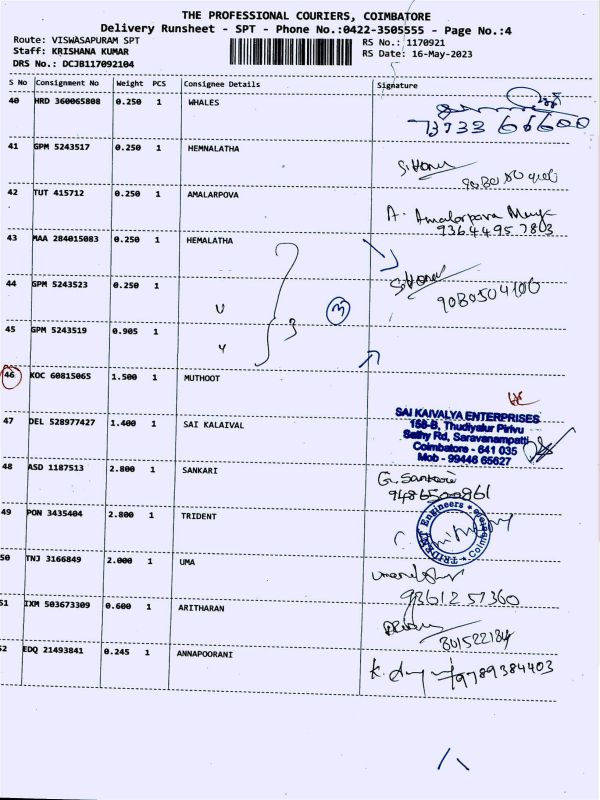 THE PROFESSIONAL COURIERS, COIMBATORE
Delivery Runsheet - SPT - Phone No.:0422-3505555 - Page No.:4
Route: VISWASAPURAM SPT
RS No.: 1170921
Staff: KRISHANA KUMAR
RS Date: 16-May-2023
DRS No.: DCJB117092104
S No Consignment No Weight PCS Consignee Details Signature
40 HRD 360065808 0.250 1 WHALES
73733 66600
41 GPM 5243517 0.250 1 HEMNALATHA
42 TUT 415712 0.250 1 AMALARPOVA
A. Amalorpava
9364495 7803
43 MAA 284015083 0.250 1 HEMALATHA
44 GPM 5243523 0.250 1
9080504100
45 GPM 5243519 0.905 1
3
46 KOC 60815065 1.500 1 MUTHOOT
47 DEL 528977427 1.400 1 SAI KALAIVAL
SAI KAIVALYA ENTERPRISES
158-B, Thudiyalur Pirivu
Sathy Rd, Saravanampatti
Coimbatore - 641 035
Mob - 99446 65627
48 ASD 1187513 2.800 1 SANKARI
G. Sankari
9486500861
49 PON 3435404 2.800 1 TRIDENT
TRIDENT Engineers * Coimbatore
50 TNJ 3166849 2.000 1 UMA
98612 57360
51 IXM 503673309 0.600 1 ARITHARAN
801522184
52 EDQ 21493841 0.245 1 ANNAPOORANI
9789384403